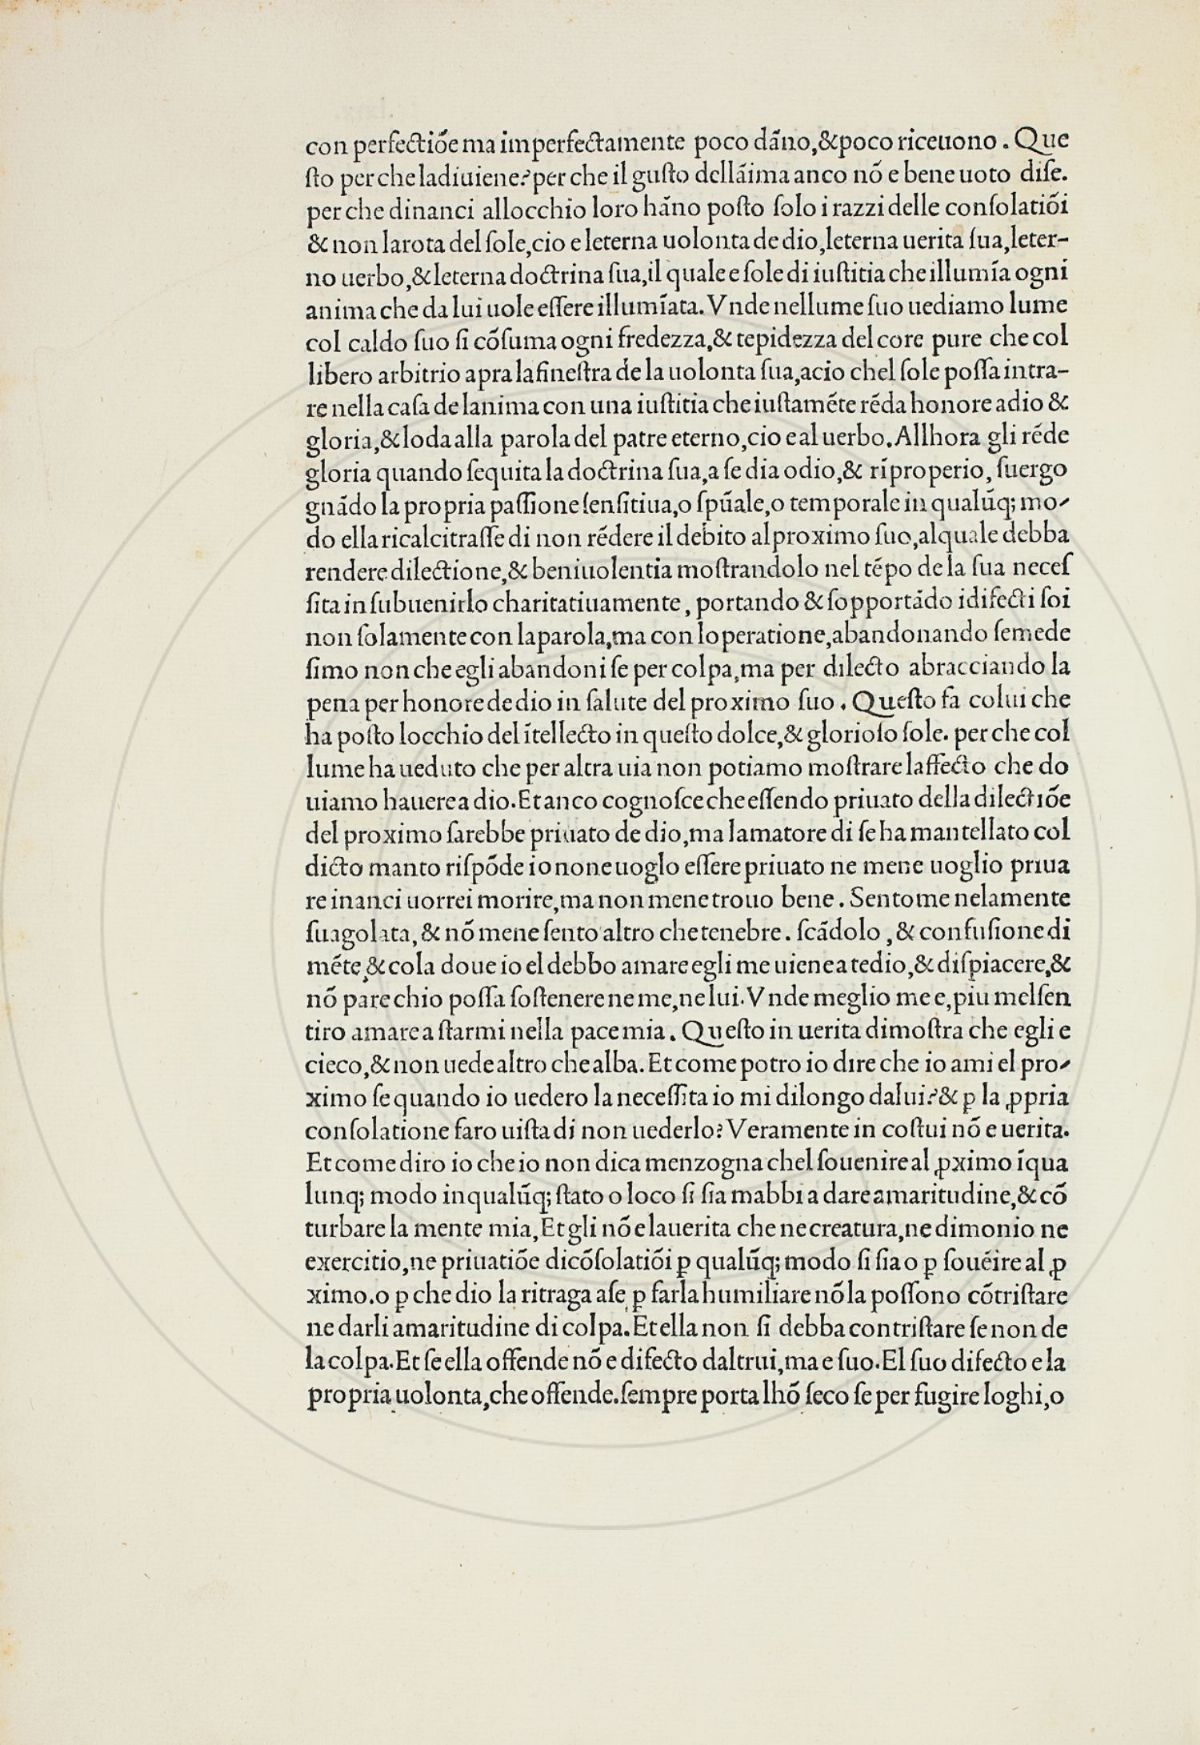 con perfectiōe ma imperfectamente poco dāno,&poco riceuono. Que
ſto per che ladiuiene? per che il guſto dellāima anco nō e bene uoto diſe.
per che dinanci allocchio loro hāno poſto ſolo i razzi delle conſolatiōi
& non larota del ſole,cio e leterna uolonta de dio,leterna uerita ſua,leter-
no uerbo,&leterna doctrina ſua,il quale e ſole di iuſtitia che illumīa ogni
anima che da lui uole eſſere illumīata. Vnde nellume ſuo uediamo lume
col caldo ſuo ſi cōſuma ogni fredezza,& tepidezza del core pure che col
libero arbitrio apra la fineſtra de la uolonta ſua,acio chel ſole poſſa intra-
re nella caſa de lanima con una iuſtitia che iuſtamēte rēda honore adio &
gloria,&loda alla parola del patre eterno,cio e al uerbo. Allhora gli rēde
gloria quando ſequita la doctrina ſua,a ſe dia odio,& rīproperio, ſuergo
gnādo la propria paſſione ſenſitiua,o ſpūale,o temporale in qualūq; mo-
do ella ricalcitraſſe di non rēdere il debito al proximo ſuo,alquale debba
rendere dilectione,& beniuolentia moſtrandolo nel tēpo de la ſua neceſ
ſita in ſubuenirlo charitatiuamente, portando & ſopportādo idifecti ſoi
non ſolamente con la parola,ma con loperatione,abandonando ſemede
ſimo non che egli abandoni ſe per colpa,ma per dilecto abracciando la
pena per honore de dio in ſalute del proximo ſuo. Queſto fa colui che
ha poſto locchio del ītellecto in queſto dolce,& glorioſo ſole. per che col
lume ha ueduto che per altra uia non potiamo moſtrare laffecto che do
uiamo hauere a dio. Et anco cognoſce che eſſendo priuato della dilectiōe
del proximo ſarebbe priuato de dio,ma lamatore di ſe ha mantellato col
dicto manto riſpōde io none uoglo eſſere priuato ne mene uoglio priua
re inanci uorrei morire,ma non mene trouo bene. Sentome nelamente
ſuagolata, & nō mene ſento altro che tenebre. ſcādolo, & confuſione di
mēte,& cola doue io el debbo amare egli me uiene a tedio,& diſpiacere,&
nō pare chio poſſa ſoſtenere ne me,ne lui. Vnde meglio me e,piu melſen
tiro amare a ſtarmi nella pace mia. Queſto in uerita dimoſtra che egli e
cieco,& non uede altro che alba. Et come potro io dire che io ami el pro-
ximo ſe quando io uedero la neceſſita io mi dilongo dalui?& ꝑ la ꝓpria
conſolatione faro uiſta di non uederlo? Veramente in coſtui nō e uerita.
Et come diro io che io non dica menzogna chel ſouenire al ꝓximo īqua
lunq; modo in qualūq; ſtato o loco ſi ſia mabbi a dare amaritudine,& cō
turbare la mente mia, Et gli nō e lauerita che ne creatura,ne dimonio ne
exercitio,ne priuatiōe dicōſolatiōi ꝑ qualūq; modo ſi ſia o ꝑ ſouēire al ꝓ
ximo.o ꝑ che dio la ritraga aſe ꝑ farla humiliare nō la poſſono cōtriſtare
ne darli amaritudine di colpa. Et ella non ſi debba contriſtare ſe non de
la colpa. Et ſe ella offende nō e difecto daltrui,ma e ſuo. El ſuo difecto e la
propria uolonta,che offende. ſempre porta lhō ſeco ſe per fugire loghi,o